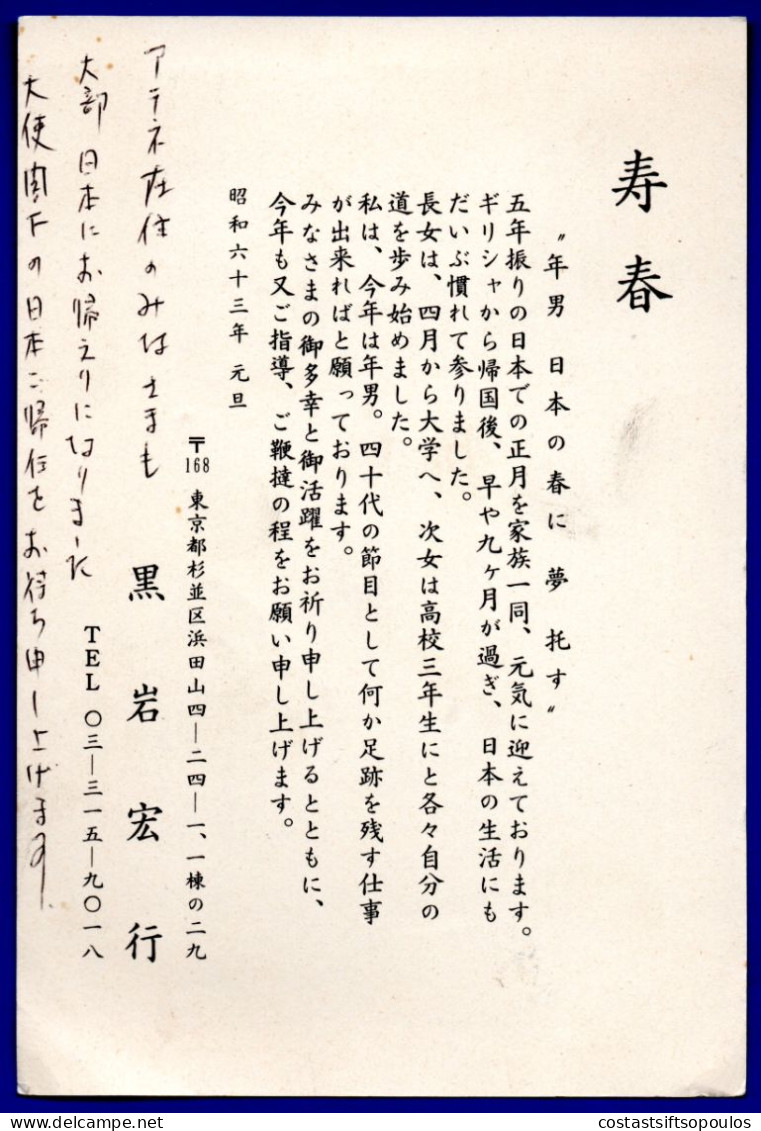 寿春
〝年男 日本の春に 夢 托す〟
五年振りの日本での正月を家族一同、元気に迎えております。
ギリシャから帰国後、早や九ヶ月が過ぎ、日本の生活にも
だいぶ慣れて参りました。
長女は、四月から大学へ、次女は高校三年生にと各々自分の
道を歩み始めました。
私は、今年は年男。四十代の節目として何か足跡を残す仕事
が出来ればと願っております。
みなさまの御多幸と御活躍をお祈り申し上げるとともに、
今年も又ご指導、ご鞭撻の程をお願い申し上げます。
昭和六十三年 元旦
〒168 東京都杉並区浜田山四―二四―一、一棟の二九
黒岩宏行
TEL 〇三―三一五―九〇一八
アテネ在住のみなさまも
大部 日本にお帰えりになりました
大使閣下の日本ご帰任をお待ち申し上げます。
delcampe.net
costastsiftsopoulos